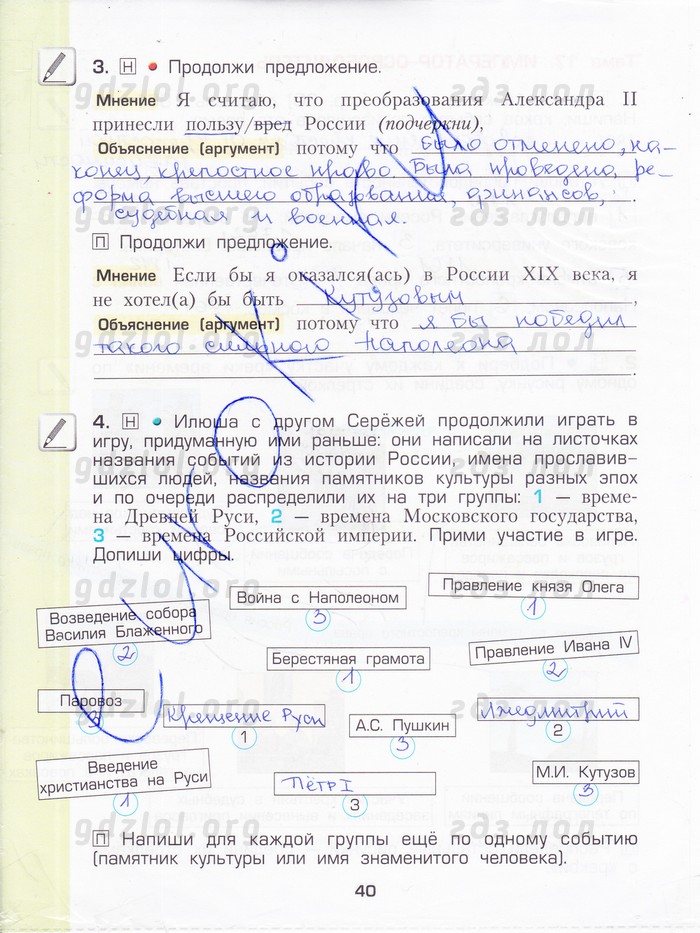 3. Н • Продолжи предложение.
Мнение Я считаю, что преобразования Александра II
принесли пользу/вред России (подчеркни),
Объяснение (аргумент) потому что было отменено, на-
конец, крепостное право. Была проведена ре-
форма высшего образования, финансов,
судебная и военная.
П Продолжи предложение.
Мнение Если бы я оказался(ась) в России XIX века, я
не хотел(а) бы быть Кутузовым,
Объяснение (аргумент) потому что я бы победил
такого сильного Наполеона
4. Н • Илюша с другом Серёжей продолжили играть в
игру, придуманную ими раньше: они написали на листочках
названия событий из истории России, имена прославив-
шихся людей, названия памятников культуры разных эпох
и по очереди распределили их на три группы: 1 — време-
на Древней Руси, 2 — времена Московского государства,
3 — времена Российской империи. Прими участие в игре.
Допиши цифры.
Возведение собора
Василия Блаженного
2
Война с Наполеоном
3
Правление князя Олега
1
Берестяная грамота
1
Правление Ивана IV
2
Паровоз
3
Крещение Руси
1
А.С. Пушкин
3
Лжедмитрий
2
Введение
христианства на Руси
1
Пётр I
3
М.И. Кутузов
3
П Напиши для каждой группы ещё по одному событию
(памятник культуры или имя знаменитого человека).
40
gdzlol.org
гдз лол
еуроки